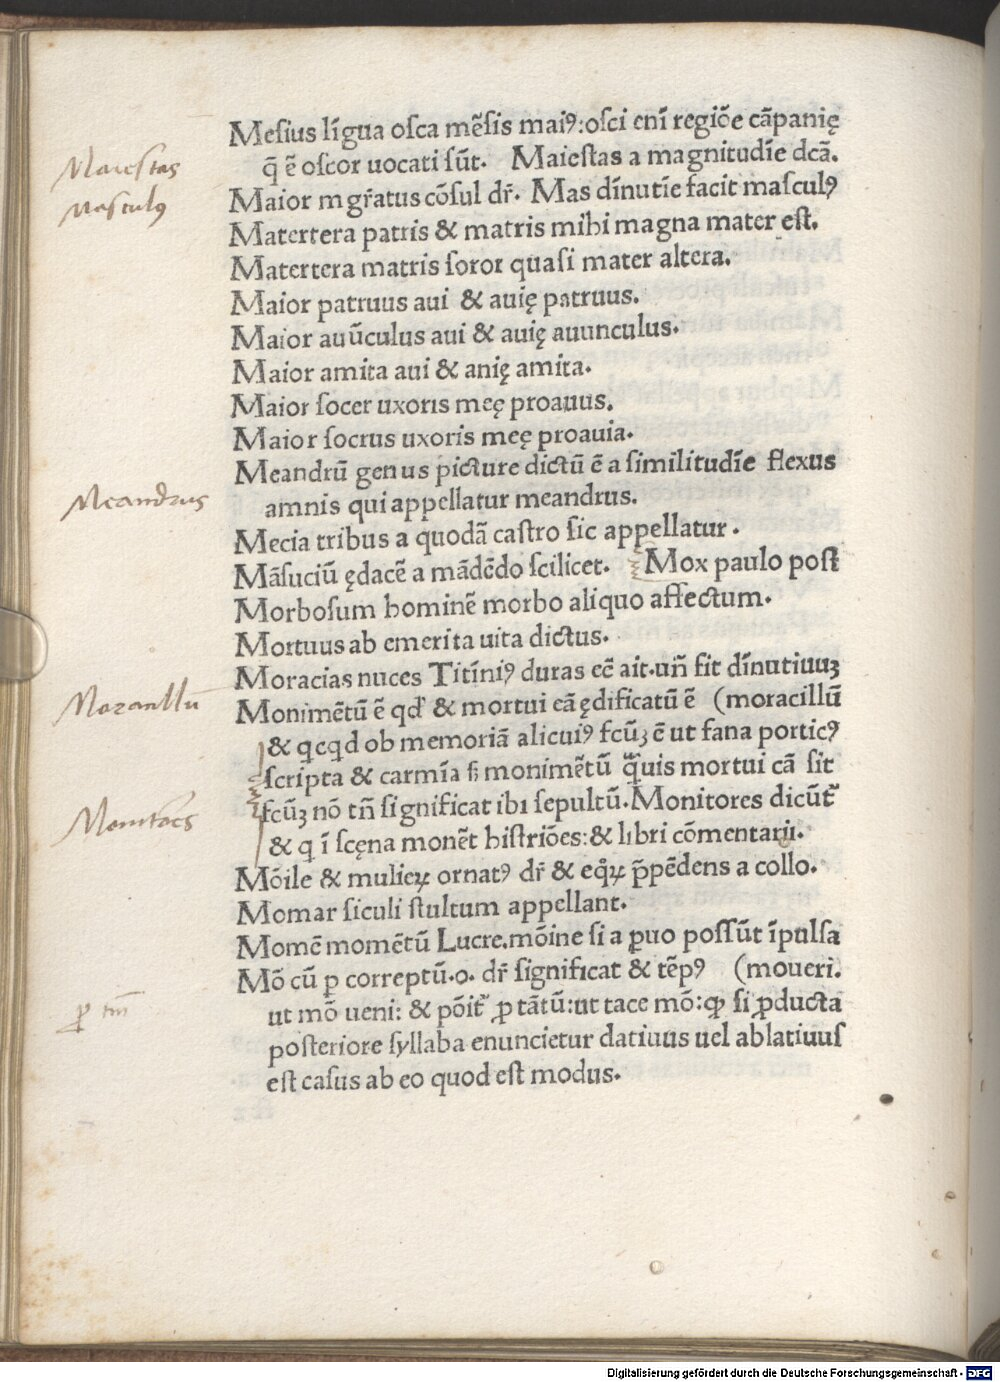 Mesius lĩgua osca mẽsis maiꝰ:osci enĩ regiõe cãpanię
q̃ ẽ oscor uocati sũt. Maiestas a magnitudĩe dcã.
Maiestas
Maior mgr̃atus cõsul dr̃. Mas dĩnutĩe facit masculꝰ
Masculꝰ
Matertera patris & matris mihi magna mater est.
Matertera matris soror quasi mater altera.
Maior patruus aui & auię patruus.
Maior auũculus aui & auię auunculus.
Maior amita aui & anię amita.
Maior socer uxoris meę proauus.
Maior socrus uxoris meę proauia.
Meandrũ genus picture dictũ ẽ a similitudĩe flexus
Meandrus
amnis qui appellatur meandrus.
Mecia tribus a quodã castro sic appellatur.
Mãsuciũ ędacẽ a mãdẽdo scilicet. Mox paulo post
Morbosum hominẽ morbo aliquo affectum.
Mortuus ab emerita uita dictus.
Moracias nuces Titĩniꝰ duras eẽ ait.uñ fit dĩnutiuuȝ
Monimẽtũ ẽ qd' & mortui cã ędificatũ ẽ (moracillũ
Moracillũ
& qcqd ob memoriã alicuiꝰ fcũȝ ẽ ut fana porticꝰ
scripta & carmĩa s; monimẽtũ q̃uis mortui cã sit
fcũȝ nõ tñ significat ibi sepultũ. Monitores dicũt᷑
Monitores
& q ĩ scęna monẽt histriões:& libri cõmentarii.
Mõile & mulieꝝ ornatꝰ dr̃ & eqͥꝝ p̃pẽdens a collo.
Momar siculi stultum appellant.
Momẽ momẽtũ Lucre.mõine si a ꝑuo possũt ĩpulsa
Mõ cũ ꝑ correptũ.o. dr̃ significat & tẽpꝰ (moueri.
ut mõ ueni: & põit᷑ ꝓ tãtũ:ut tace mõ:ꝙ si ꝓducta
posteriore syllaba enuncietur datiuus uel ablatiuus
est casus ab eo quod est modus.
Digitalisierung gefördert durch die Deutsche Forschungsgemeinschaft - DFG